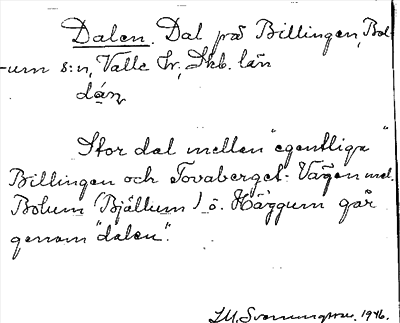 Dalen. Dal på Billingen, Bol-
-um s:n, Valle hr, Skb. län
dán,
Stor dal mellan "egentliga"
Billingen och Tovaberget. Vägen mel.
Bolum (Bjällum) o. Häggum går
genom "dalen".
1946.